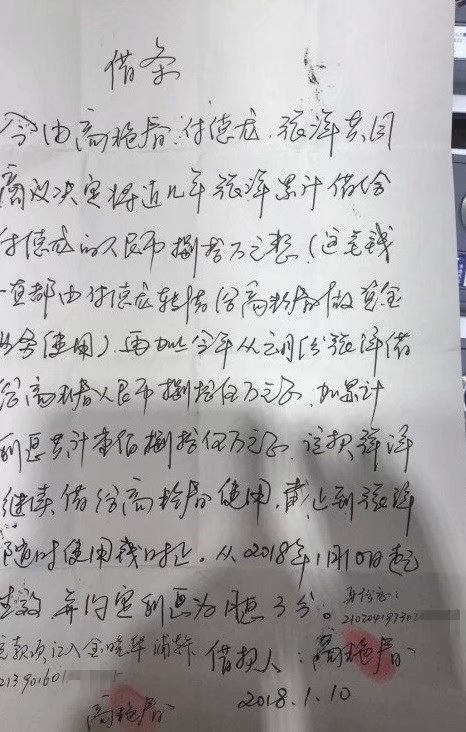 借条
今由高艳春、付德龙、张洋共同
商议决定将近几年张洋累计借给
付德龙的人民币捌拾万元整（这笔钱
一直都由付德龙转借给高艳春做资金
业务使用）。再加上今年从元月份张洋借
给高艳春人民币捌拾伍万元，加累计
利息共计壹佰捌拾伍万元。这款张洋
继续借给高艳春使用，截止到张洋
随时使用钱时止。从2018年1月10日起
生效 并约定利息为月息3分。
身份证：
210204197302
款项记入金晓华
213901601
借款人：高艳春
2018.1.10
高艳春